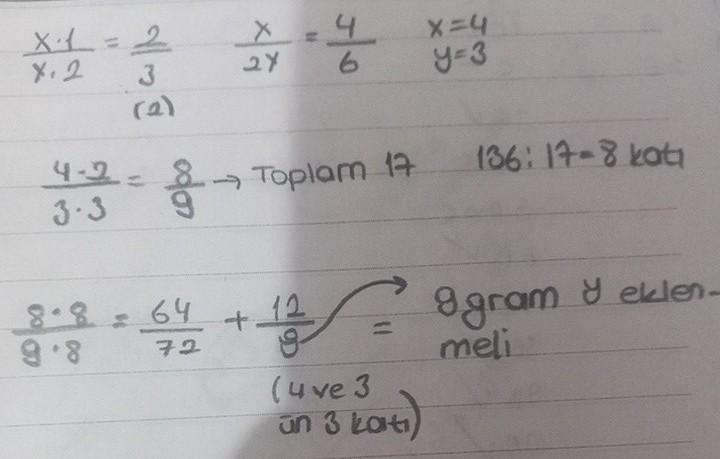 x.1/x.2 = 2/3 (2) x/2y = 4/6 x=4 y=3
4.2/3.3 = 8/9 → Toplam 17 136:17=8 katı
8.8/9.8 = 64/72 + 12/9 = 9 gram y eklen-
meli
(4 ve 3
ün 3 katı)